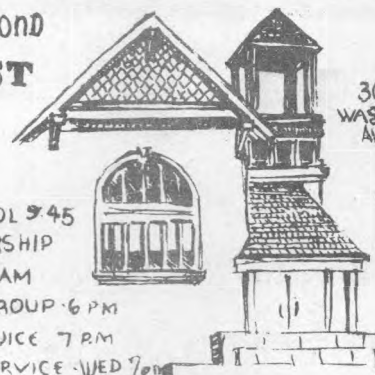 OND
ST
30
WAS
A
OL 9:45
RSHIP
AM
ROUP - 6 PM
VICE 7 P.M
ERVICE - WED 7 PM